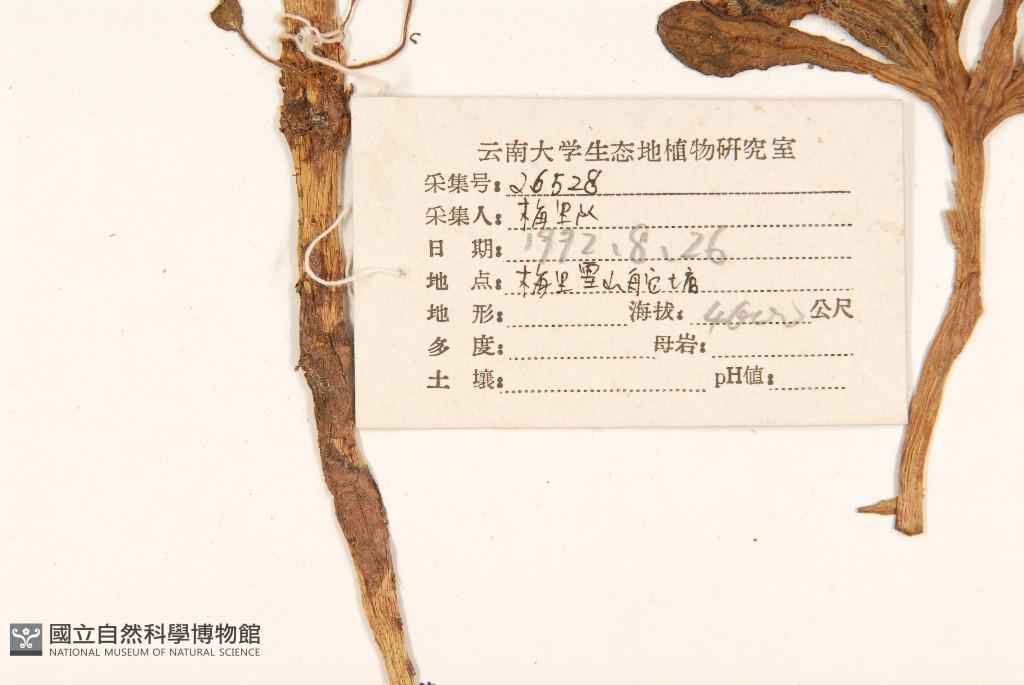 云南大学生态地植物研究室
采集号: 26528
采集人: 梅里队
日 期: 1992.8.26
地 点: 梅里雪山
地 形: 海拔: 公尺
多 度: 母岩:
土 壤: pH值:
國立自然科學博物館
NATIONAL MUSEUM OF NATURAL SCIENCE